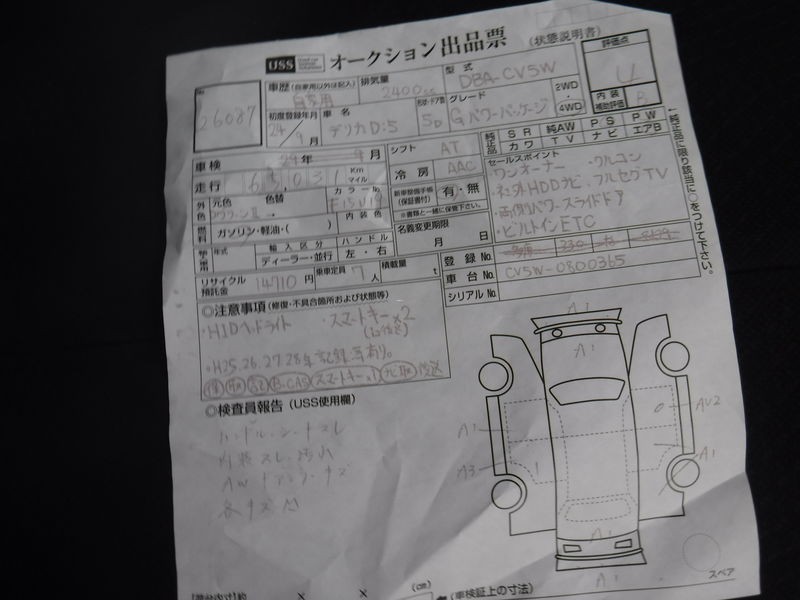 USS オークション出品票 (状態説明書)
評価点
4
No.
26087
車歴 (自家用以外は記入)
自家用
排気量
2400cc
型式
DBA-CV5W
内装
補助評価
B
初度登録年月
24年9月
車名
デリカD:5
形状・ドア数
5D
グレード
Gパワーパッケージ
2WD
4WD
車検
24年 9月
シフト
AT
純正品
SR 純AW PS PW
カワ TV ナビ エアB
走行
163,031 Km
マイル
冷房
AAC
セールスポイント
・ワンオーナー ・クルコン
・社外HDDナビ、フルセグTV
・両側パワースライドドア
・ビルトインETC
外色
元色
色替
カラーNo.
内装色
新車整備手帳
(保証書付)
有・無
※書類と一緒に保管下さい。
燃料
ガソリン・軽油・( )
名義変更期限
月 日
年式
輸入区分
ディーラー・並行
ハンドル
左・右
登録No.
車台No.
CV5W-0800365
シリアルNo.
リサイクル
預託金
14710円
乗車定員
7人
積載量
t
↑純正品に限り該当に○をつけて下さい。
◎注意事項 (修復・不具合箇所および状態等)
・HIDヘッドライト ・スマートキー×2
・H25.26.27.28年記録簿有り。
B-CAS スマートキー×1 ナビ取 後送
◎検査員報告 (USS使用欄)
ハンドル・シートスレ
内装スレ・汚れ
AWキズ
各キズ凹
A1
A1
A1
AU2
A1
A3
A1
A1
A1
スペア
【荷台内寸】約 × × (cm)
(車検証上の寸法)